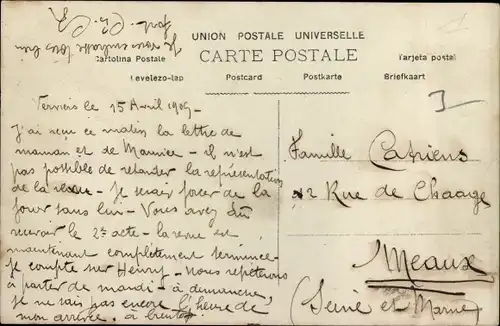 UNION POSTALE UNIVERSELLE
CARTE POSTALE
Cartolina Postale
Tarjeta postal
Levelezo-lap
Postcard
Postkarte
Briefkaart
Je vous embrasse tous bien
fort
le 15 Avril 1909-
J'ai reçu ce matin la lettre de
maman et de Maurice - il n'est
pas possible de retarder la représentation
de la revue - Je serai forcé de la
jouer sans lui - Vous avez dû
recevoir le 2e acte - la revue est
maintenant complètement terminée -
Je compte sur Henry - Nous répétons
à partir de mardi - à dimanche,
Je ne sais pas encore l'heure de
mon arrivée. à bientôt
Famille
12 Rue de Chaage
Meaux
(Seine et Marne)